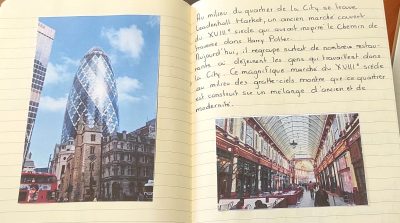 Au milieu du quartier de la City se trouve
Leadenhall Market, un ancien marché couvert
du XVIIIe siècle qui aurait inspiré le Chemin de
traverse dans Harry Potter.
Aujourd'hui, il regroupe surtout de nombreux restau-
rants où déjeunent les gens qui travaillent dans
la City. Ce magnifique marché du XVIIIe siècle
au milieu des gratte-ciels montre que ce quartier
est construit sur un mélange d'ancien et de
modernité.